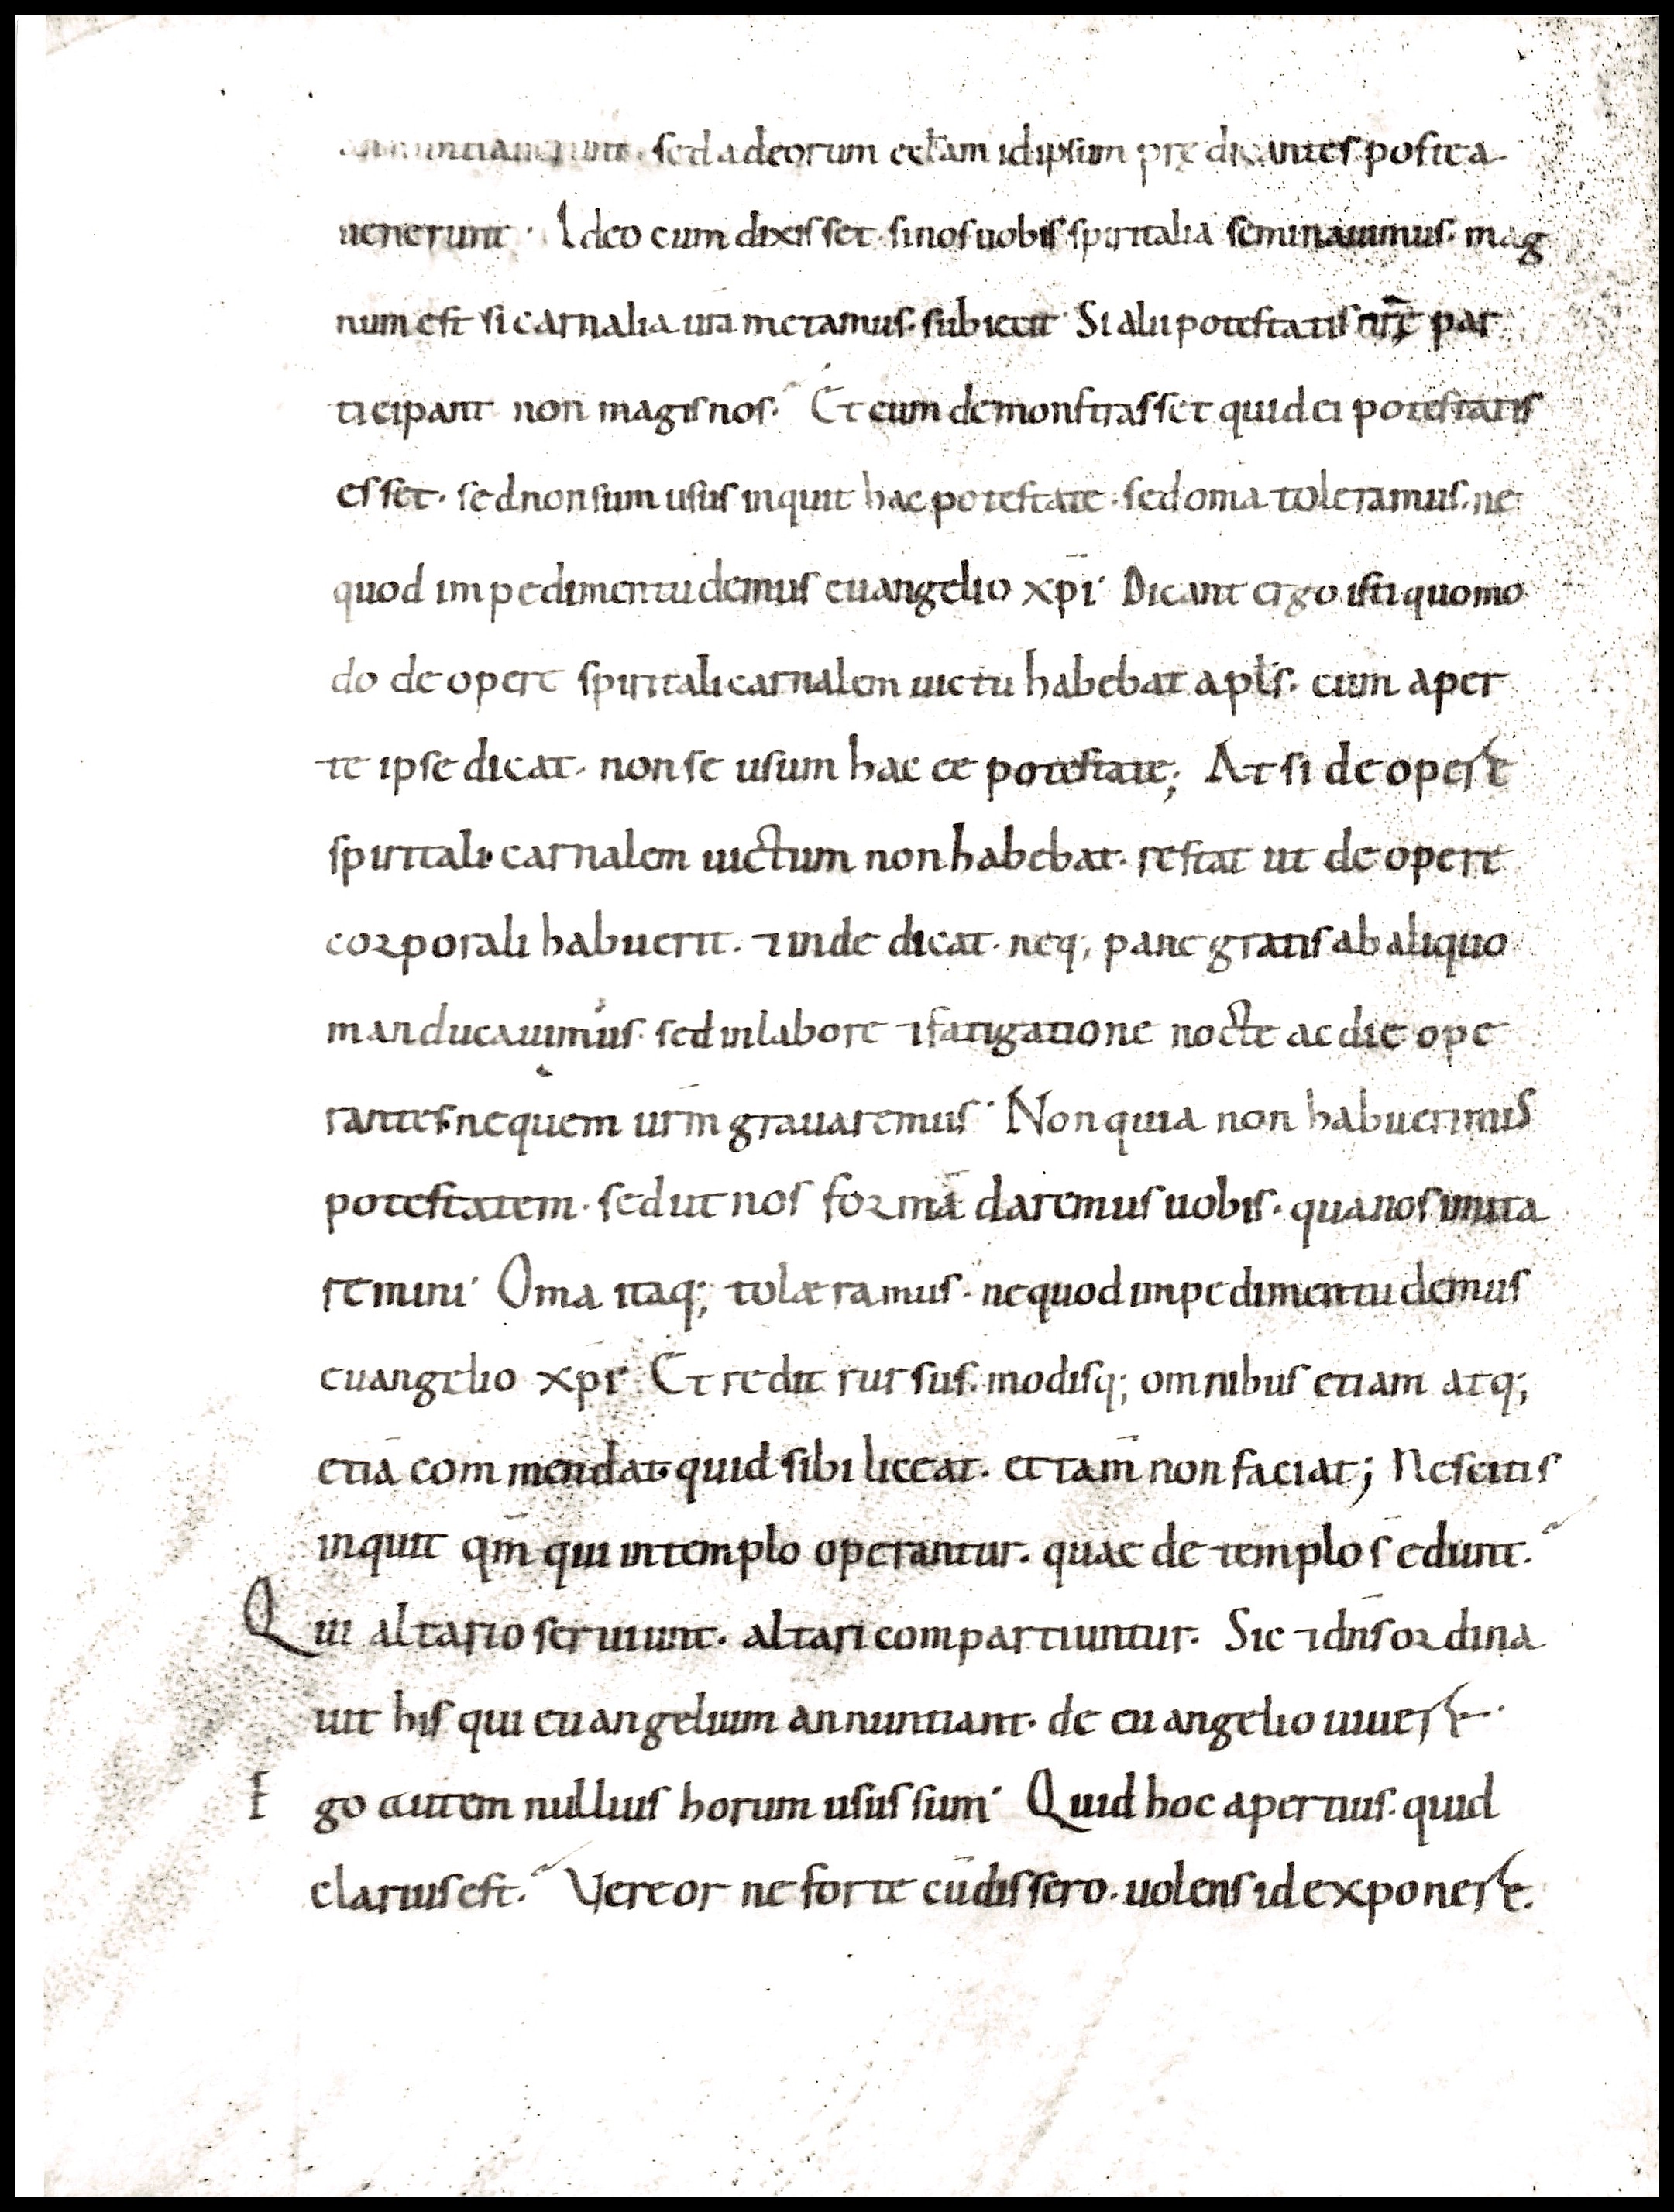 annuntiauerunt. sed ad eorum eccłam id ipsum prędicantes postea
uenerunt· Ideo cum dixisset· si nos uobis spiritalia seminauimus· mag
num est si carnalia ur̄a metamus· subiecit· Si alii potestatis nr̄ę par
ticipant non magis nos·? Et cum demonstrasset quid ei potestatis
esset· sed non sum usus inquit hac potestate· sed om̄a toleramus· ne
quod impedimentū demus euangelio xp̄i· Dicant ergo isti quomo
do de opere spiritali carnalem uictū habebat apłs· cum aper
te ipse dicat· non se usum hac eē potestate; At si de opere
spiritali· carnalem uictum non habebat· restat ut de opere
corporali habuerit· ⁊ inde dicat· neq; panē gratis ab aliquo
manducauimus· sed in labore ⁊ fatigatione nocte ac die ope
rantes· ne quem ur̄m grauaremus· Non quia non habuerimus
potestatem· sed ut nos formā daremus uobis· qua nos imita
remini· Om̄a itaq; tolæramus· ne quod impedimentū demus
euangelio xp̄i· Et redit rursus· modisq; omnibus etiam atq;
etiā commendat· quid sibi liceat· et tam̄ non faciat; Nescitis
inquit qm̄ qui in templo operantur· quae de templo s̄ edunt·?
Qui altario seruiunt· altari compartiuntur· Sic ⁊ dn̄s ordina
uit his qui euangelium annuntiant· de euangelio uiuere·
Ego autem nullius horum usus sum· Quid hoc apertius· quid
clarius est·? Vereor ne forte cū dissero· uolens id exponere·